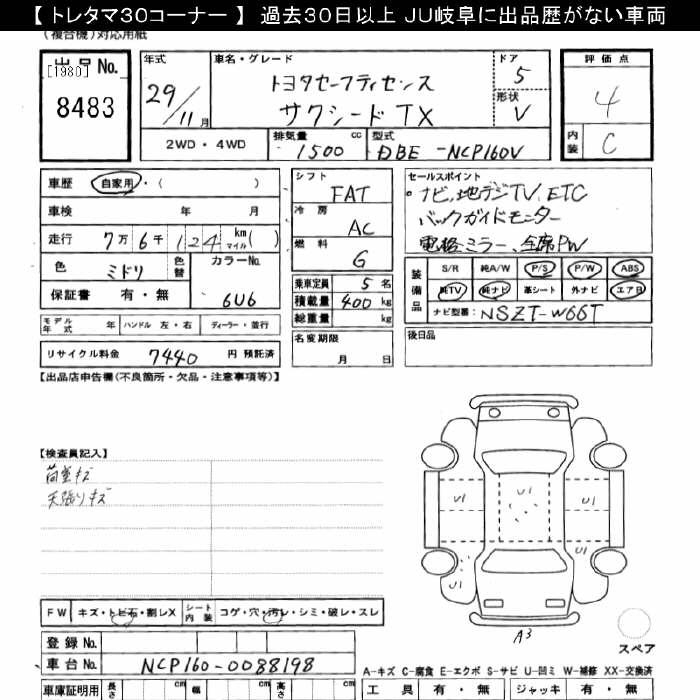 【 トレタマ30コーナー 】 過去30日以上 JU岐阜に出品歴がない車両
(複合機)対応用紙
出品No.
[1980]
8483
年式
29/11月
車名・グレード
トヨタセーフティセンス
サクシードTX
ドア
5
形状
V
評価点
4
内装
C
2WD・4WD
排気量 1500 cc
型式 DBE-NCP160V
車歴 自家用・( )
車検 年 月
走行 7万6千124 km マイル( )
色 ミドリ
色替
カラーNo. 6U6
保証書 有・無
シフト FAT
冷房 AC
燃料 G
乗車定員 5名
積載量 400 kg
総重量 kg
セールスポイント
・ナビ、地デジTV、ETC
バックガイドモニター
電格ミラー、全席PW
装備品
S/R 純A/W P/S P/W ABS
純TV 純ナビ 革シート 外ナビ エアB
ナビ型番: NSZT-W66T
モデル年式 年
ハンドル 左・右
ディーラー・並行
名変期限
月 日
後日品
リサイクル料金 7440 円 預託済
【出品店申告欄(不良箇所・欠品・注意事項等)】
【検査員記入】
荷室キズ
天張りキズ
U1
U1
U1
U1
U1
A3
スペア
FW キズ・トビ石・割レX
シート内装 コゲ・穴・汚レ・シミ・破レ・スレ
登録No.
車台No. NCP160-0088198
A-キズ C-腐食 E-エクボ S-サビ U-凹ミ W-補修 XX-交換済
車庫証明用 長さ cm 幅 cm 高さ cm
工具 有・無 ジャッキ 有・無